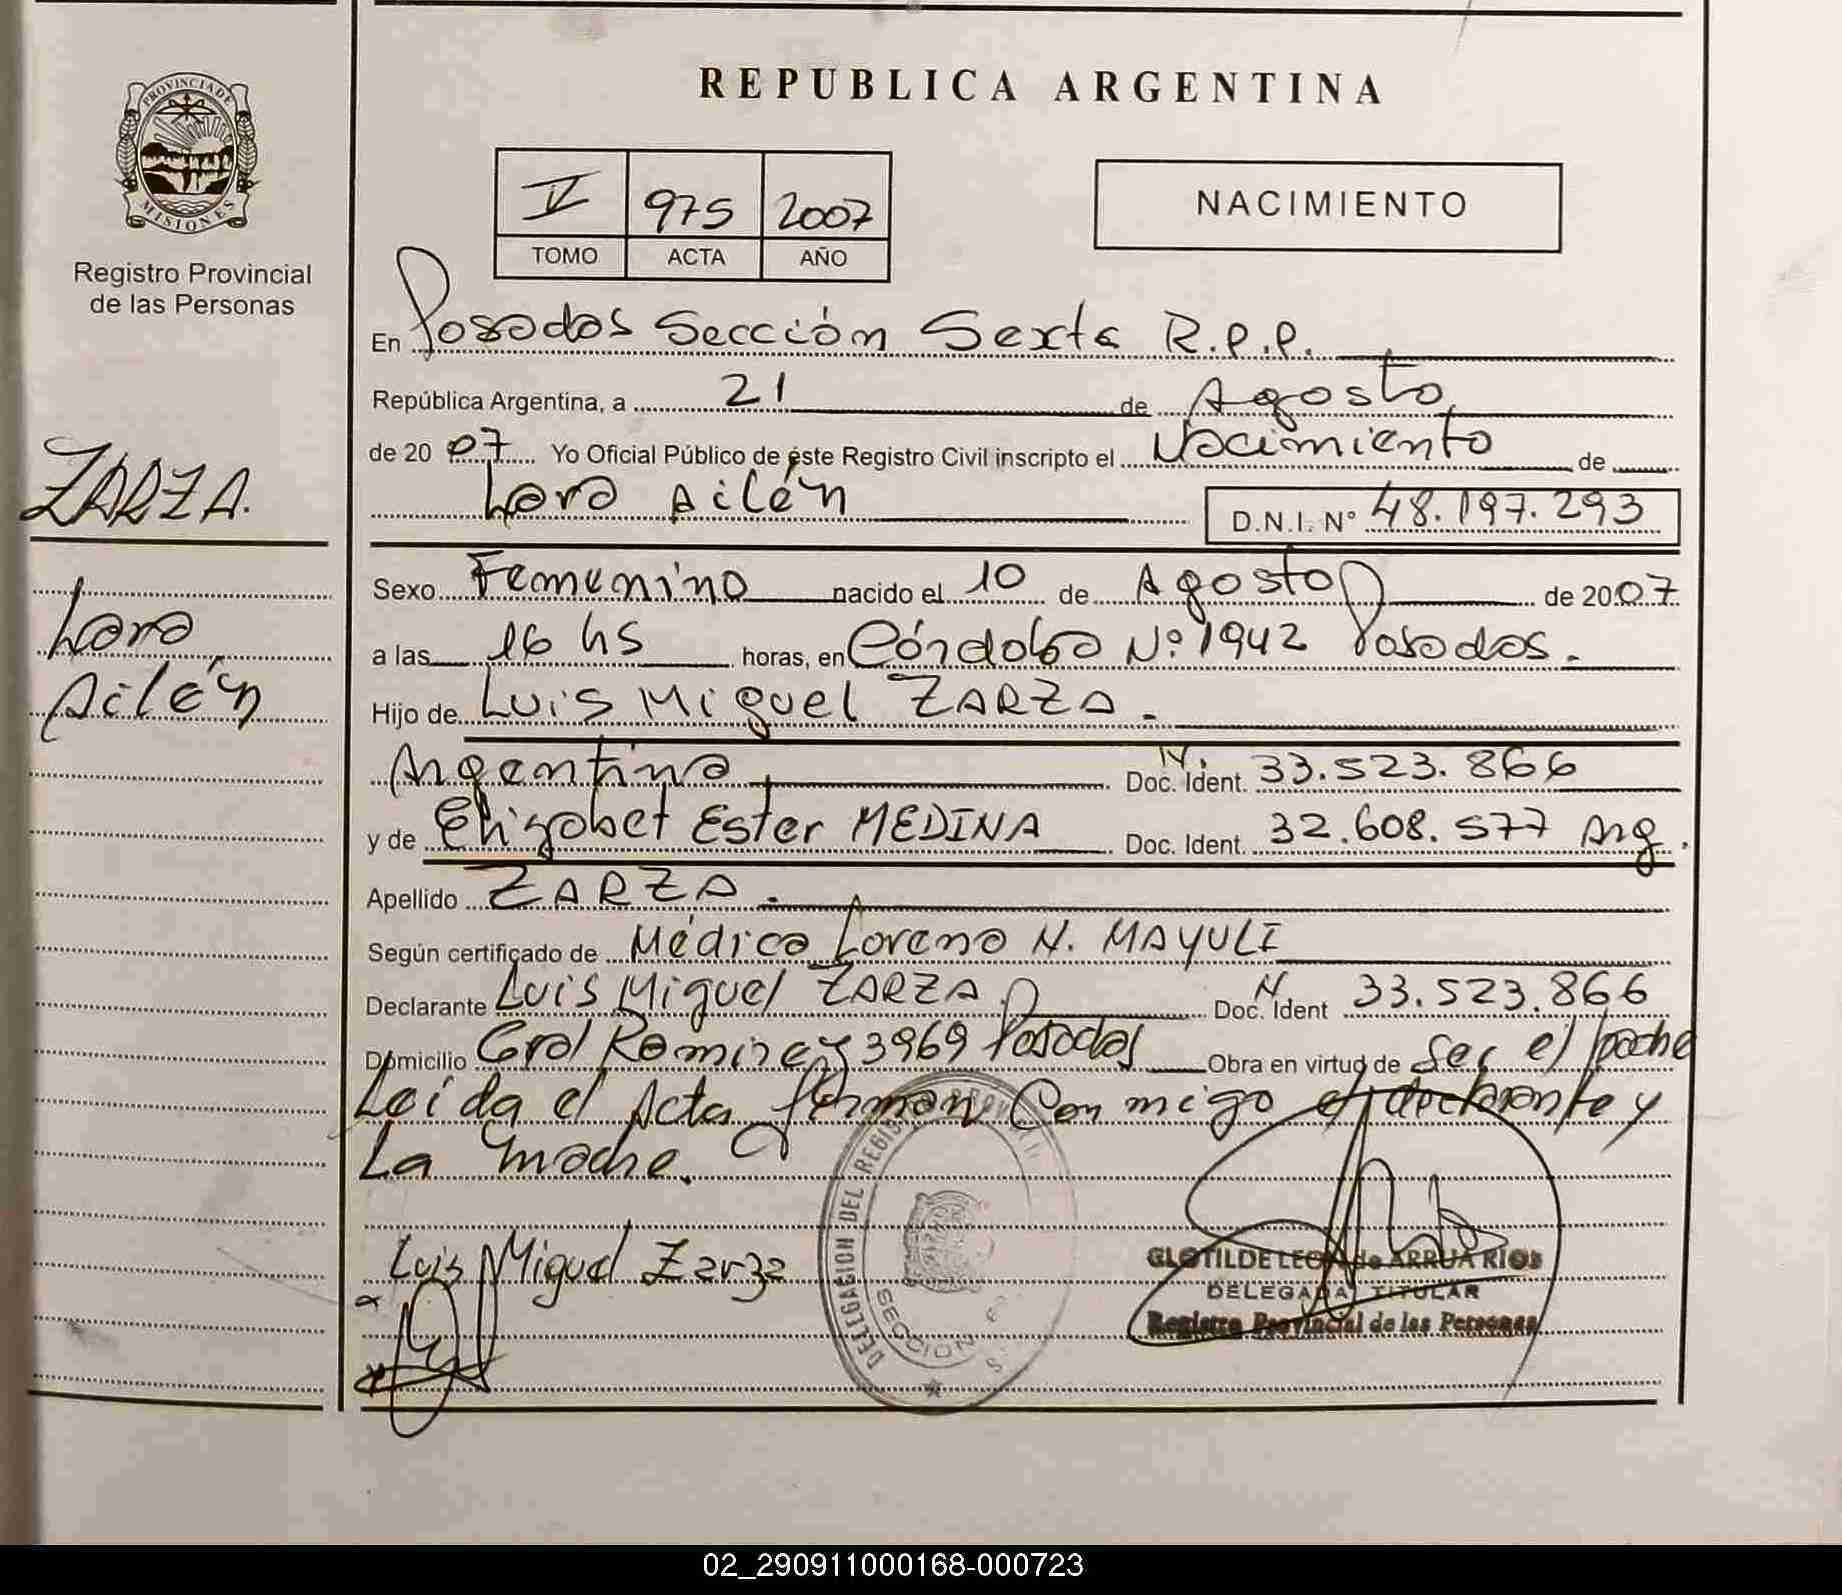 PROVINCIA DE
MISIONES
Registro Provincial
de las Personas
ZARZA.
Lara
Ailén
REPUBLICA ARGENTINA
V 975 2007
TOMO ACTA AÑO
NACIMIENTO
En Posadas Sección Sexta R.P.P.
República Argentina, a 21 de Agosto
de 20 07 Yo Oficial Público de éste Registro Civil inscripto el Nacimiento de
Lara Ailén D.N.I. N° 48.197.293
Sexo Femenino nacido el 10 de Agosto de 2007
a las 16 hs horas, en Córdoba N°. 1942 Posadas.
Hijo de Luis Miguel ZARZA.
Argentina Doc. N. Ident. 33.523.866
y de Elizabet Ester MEDINA Doc. Ident. 32.608.577 Arg.
Apellido ZARZA.
Según certificado de Médica Lorena N. MAYULI
Declarante Luis Miguel ZARZA. Doc. N Ident 33.523.866
Domicilio Gral Ramirez 3969 Posadas Obra en virtud de Ser el padre
Leída el Acta firman Conmigo el declarante y
La madre.
DELEGACION DEL REGISTRO
SECCION
Luis Miguel Zarza
CLOTILDE LEON de ARRUA RIOS
DELEGADA TITULAR
Registro Provincial de las Personas
02_290911000168-000723